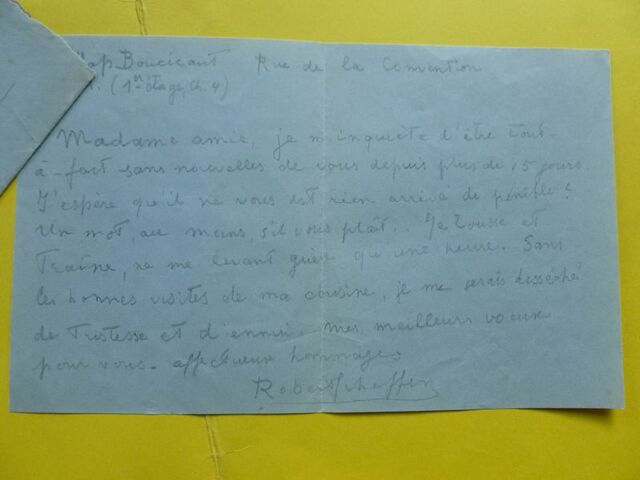 Hôp Boucicaut Rue de la Convention
(1er étage, Ch. 4)
Madame amie, je m'inquiète d'être tout-
à-fait sans nouvelles de vous depuis plus de 15 jours.
J'espère qu'il ne vous est rien arrivé de pénible?
Un mot, au moins, s'il vous plaît.. Je tousse et
traîne, ne me levant guère qu'une heure. Sans
les bonnes visites de ma cousine, je me serais desséché
de tristesse et d'ennui. Mes meilleurs voeux
pour vous. affectueux hommages
Robert Scheffer